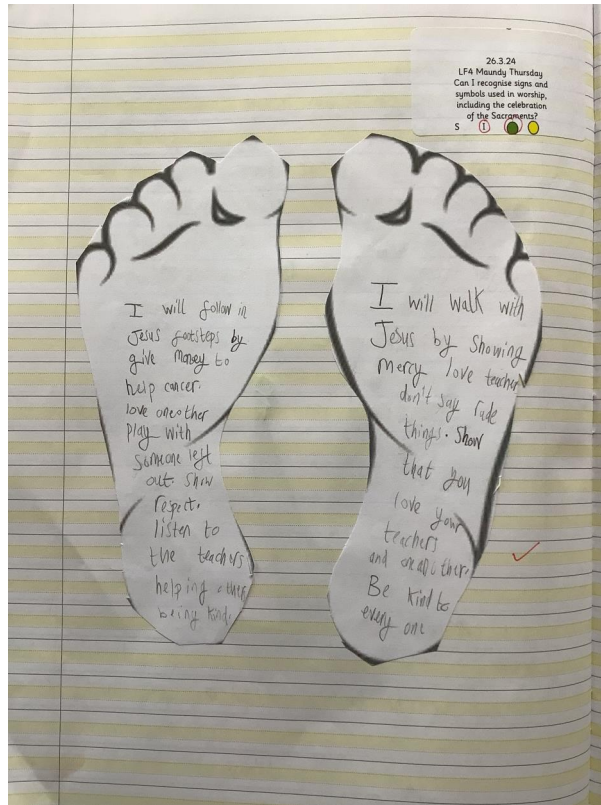 26.3.24
LF4 Maundy Thursday
Can I recognise signs and
symbols used in worship,
including the celebration
of the Sacraments?
S I
I will follow in
Jesus footsteps by
give money to
help cancer.
love oneother
Play with
Someone left
out show
respect.
listen to
the teachers
helping others
being kind.
I will walk with
Jesus by Showing
Mercy love teacher
don't say rude
things. Show
that you
love your
teachers
and oneanother.
Be kind to
every one